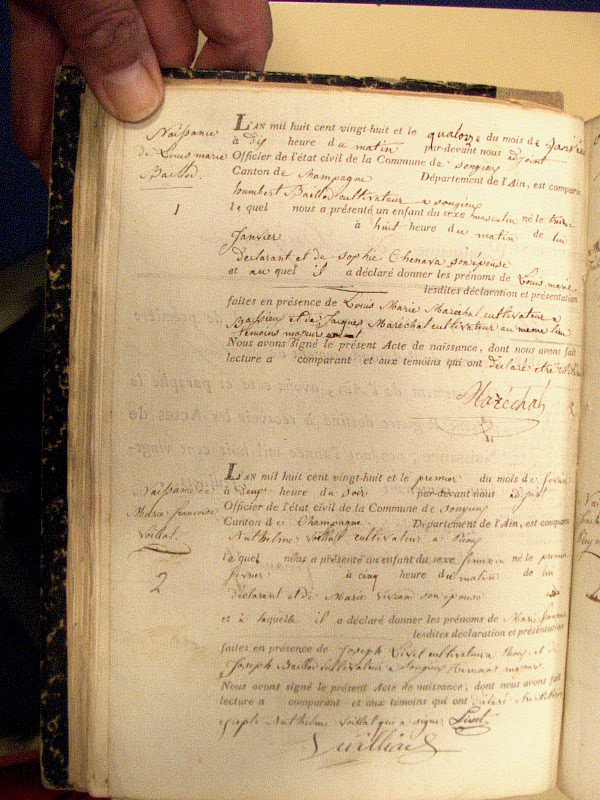 Naissance
de Louis marie
Baillod.
1
L'AN mil huit cent vingt-huit et le quatorze du mois de janvier
à dix heure du matin par-devant nous adjoint
Officier de l'état civil de la Commune de Songieu
Canton de Champagne Département de l'Ain, est comparu
humbert Baillod cultivateur a Songieu
le quel nous a présenté un enfant du sexe masculin né le treize
Janvier à huit heure du matin de lui
déclarant et de Sophie Chenava son épouse
et au quel il a déclaré donner les prénoms de Louis marie
lesdites déclaration et présentation
faites en présence de Louis Marie Maréchal cultivateur a
Bassieu et de Jacques Maréchal cultivateur au même lieu
témoins majeur
Nous avons signé le présent Acte de naissance, dont nous avons fait
lecture a comparant et aux témoins qui ont déclaré
Maréchal
Naissance de
Marie francoise
Voillat.
2
L'AN mil huit cent vingt-huit et le premier du mois de fevrier
à deux heure du soir par-devant nous adjoint
Officier de l'état civil de la Commune de Songieu
Canton de Champagne Département de l'Ain, est comparu
Anthelme Voillat cultivateur a
la quel nous a présenté un enfant du sexe feminin né le premier
fevrier à cinq heure du matin de lui
déclarant et de Marie Vivian son épouse
et à laquelle il a déclaré donner les prénoms de Marie francoise
lesdites déclaration et présentation
faites en présence de Joseph Livet cultivateur a et de
Joseph Baillod cultivateur a Songieu témoins majeurs
Nous avons signé le présent Acte de naissance, dont nous avons fait
lecture a comparant et aux témoins qui ont déclaré
excepté Anthelme Voillat qui a signer